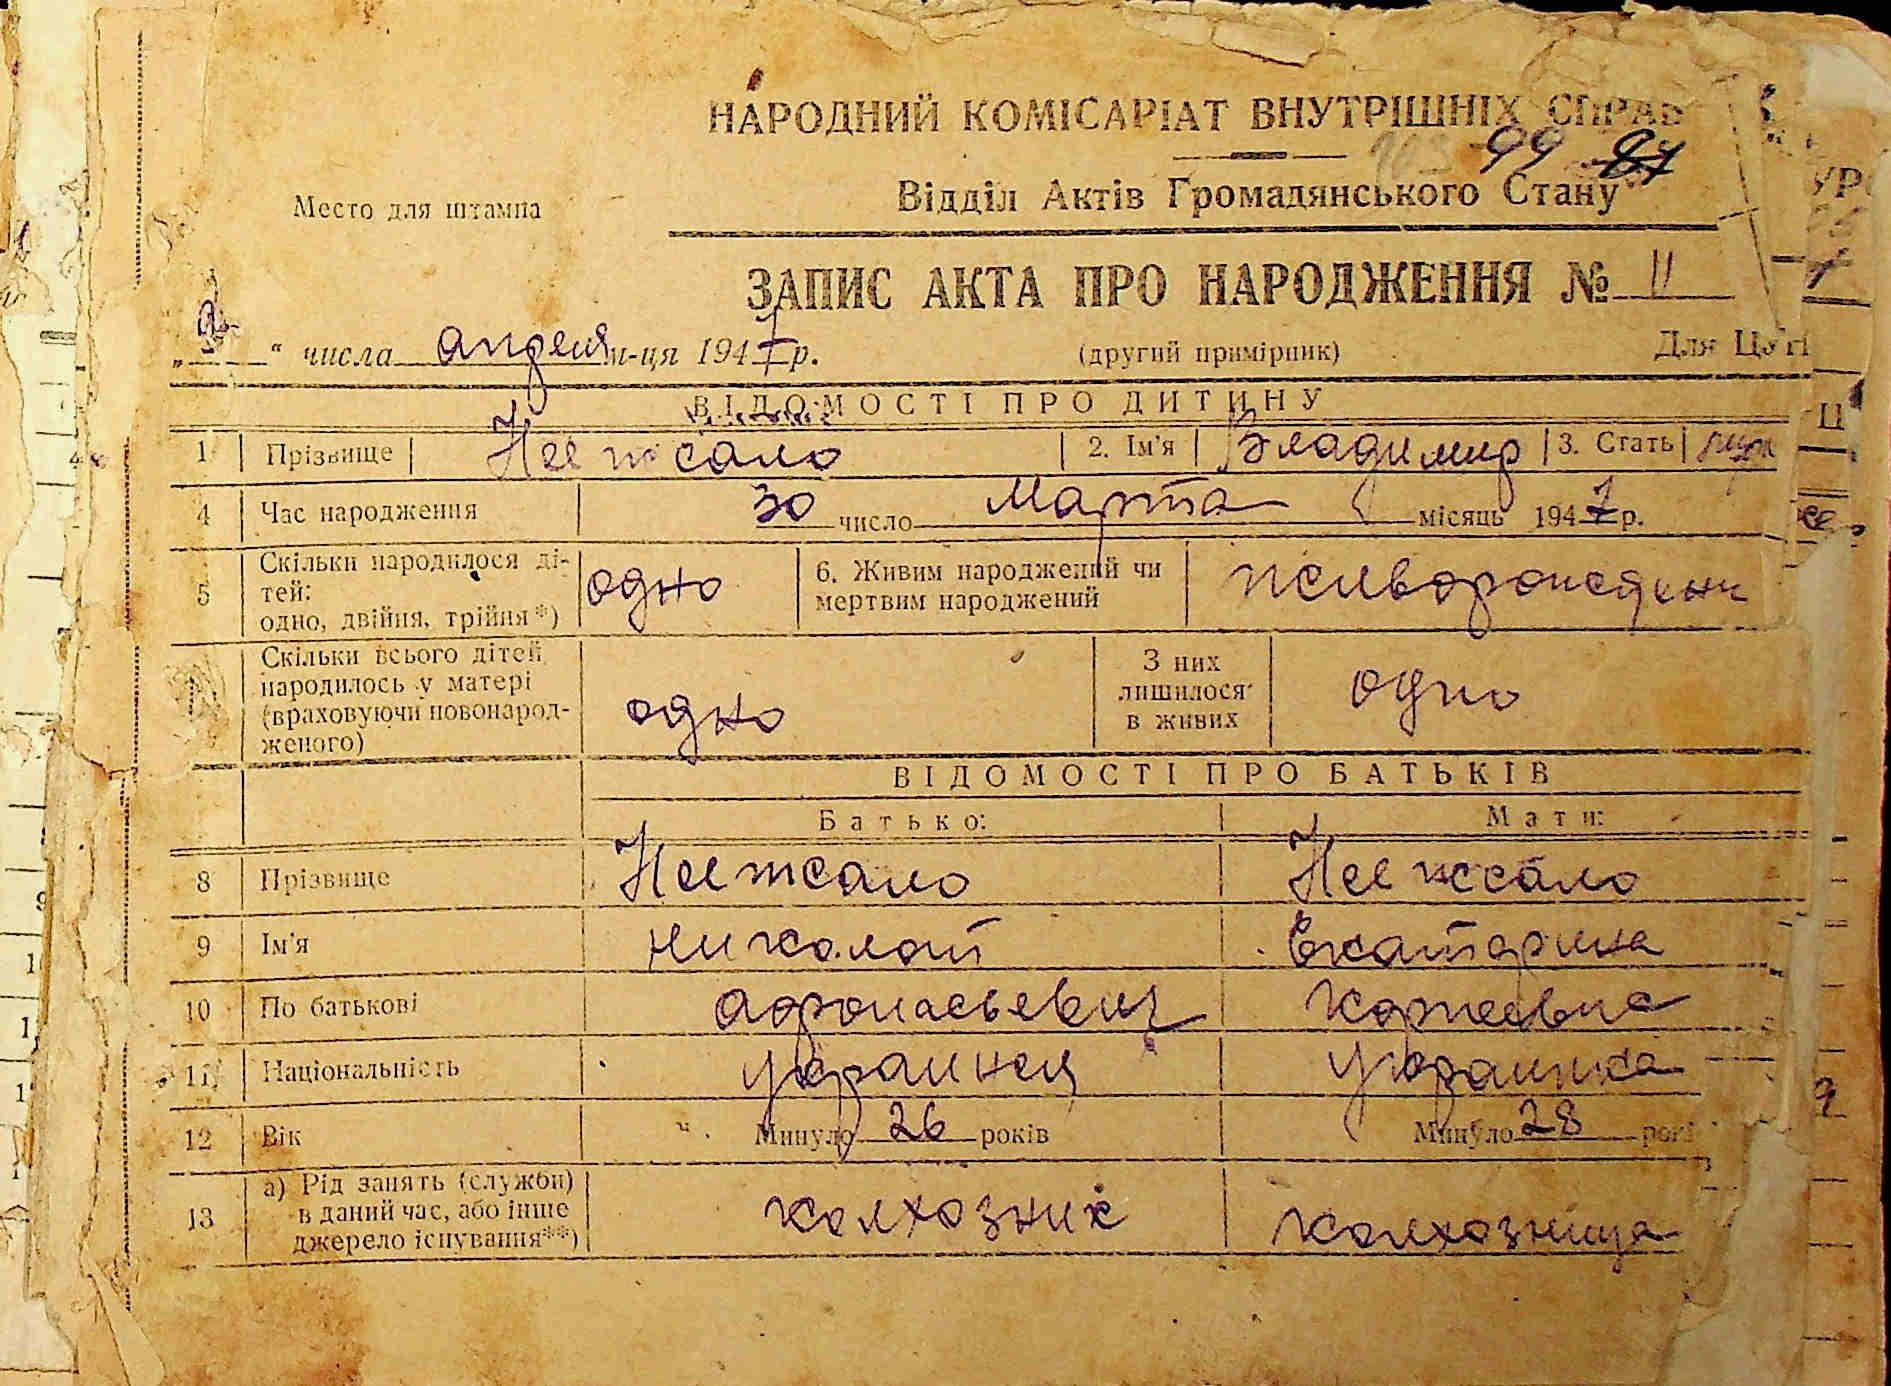 НАРОДНИЙ КОМІСАРІАТ ВНУТРІШНІХ СПРАВ
99 87
Место для штампа
Відділ Актів Громадянського Стану
ЗАПИС АКТА ПРО НАРОДЖЕННЯ № 11
" числа апреля м-ця 1947 р. (другий примірник) Для ЦУН
ВІДОМОСТІ ПРО ДИТИНУ
1 Прізвище Неежсало 2. Ім'я Владимир 3. Стать муж
4 Час народження 30 число Марта місяць 1947 р.
5 Скільки народилося ді-
тей:
одно, двійня, трійня*) одно 6. Живим народжений чи
мертвим народжений живорожден
Скільки всього дітей
народилось у матері
(враховуючи новонарод-
женого) одно З них
лишилося
в живих одно
ВІДОМОСТІ ПРО БАТЬКІВ
Батько: Мати:
8 Прізвище Неежсало Неежсало
9 Ім'я Николай Екатерина
10 По батькові Афонасьевич Корнеевна
11 Національність украинец украинка
12 Вік Минуло 26 років Минуло 28 рокі
13 а) Рід занять (служби)
в даний час, або інше
джерело існування**) колхозник колхозница